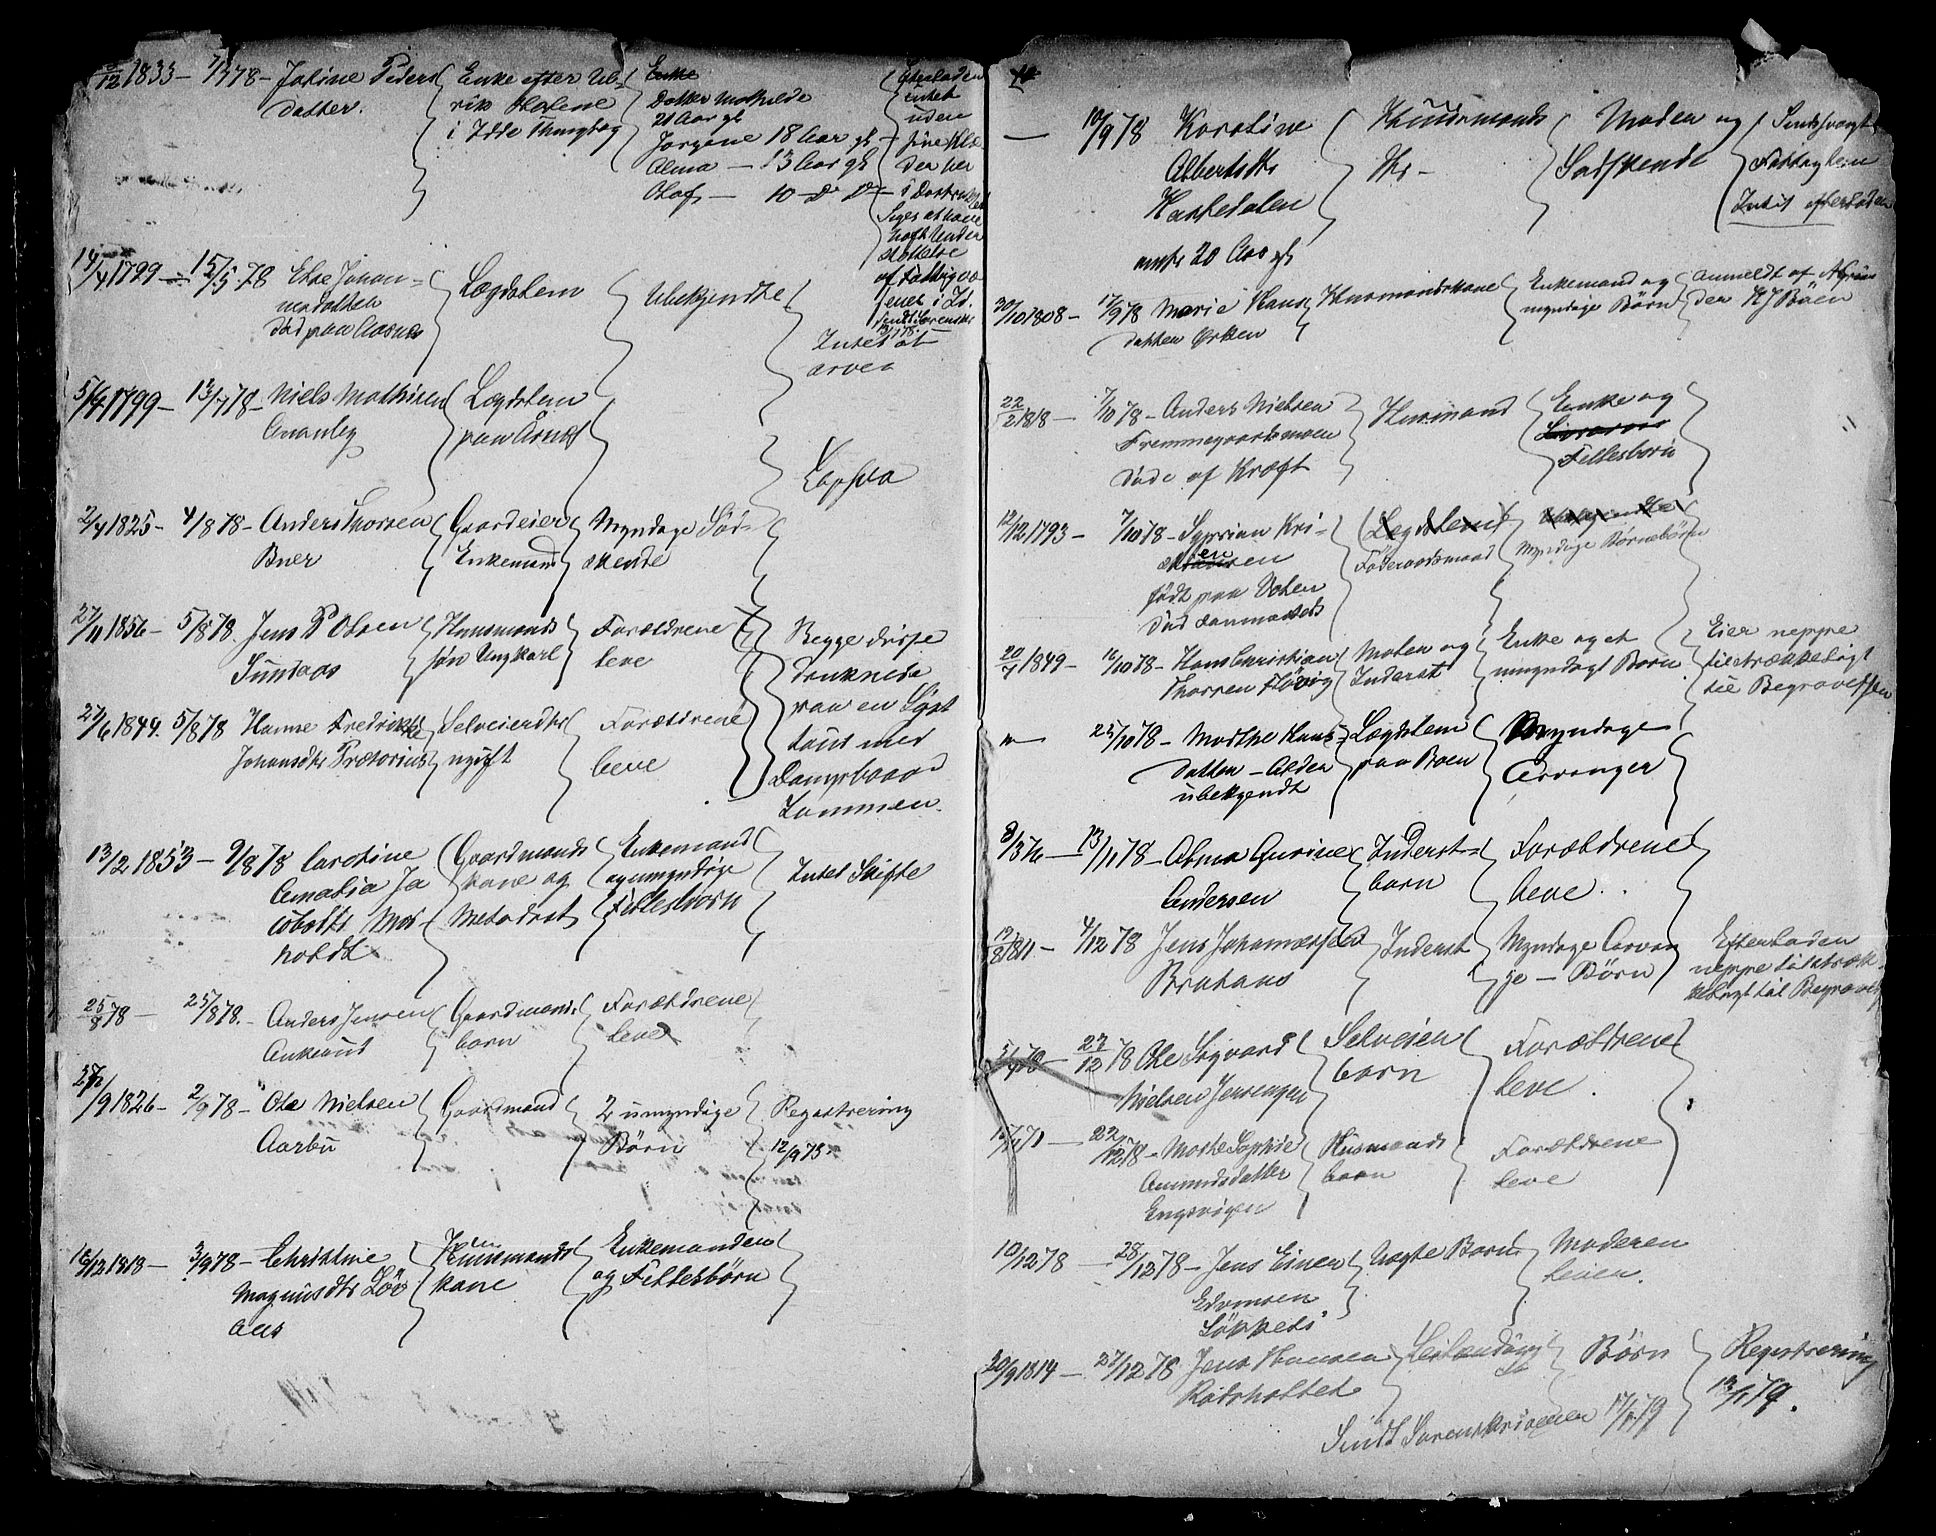 /12 1833 – 7/7 78 – Josine Peders
datter.
Enke efter Ul-
rik Holene
i Idde Thinglag
Enke
Datter Mathilde
21 Aar gl
Jørgine 18 Aar gl
Alma – 13 Aar gl
Olaf – 10 D D
Efterladen
intet
uden
sine Klæ-
der her
i Distriktet
Siges at have
havt Under
støttelse
af Fattigvæ-
senet i Id.
Sendt Sorenskr
14/4 1799 – 15/5 78 Else Johan-
nesdatter
død paa Aasnes
Lægdslem
Ubekjendte
Intet at
arves
5/4 1799 – 13/7 78 – Niels Mathisen
Lægdslem
paa Åsnes
2/4 1825 – 4/8 78 – Anders Thorsen
Buer
Gaardeier
Enkemand
Myndige Sød-
skende
27/11 1856 – 5/8 78. Jens P Olsen
Sundaas
Husmands
søn Ungkarl
Forældrene
leve
Begge disse
druknede
paa en Lyst
tour med
Dampbaad
sammen.
27/6 1844. 5/8 78 Hanne Fredrikke
Johansdtr Prætorius
Selveierdtr
ugift
Forældrene
leve
13/2 1853 – 9/8 78 Caroline
Amalia Ja
cobsdtr Mor-
holdt
Gaardmands
kone og
Enkemand
og umyndige
Fellesbørn
Intet Skifte
25/8 78 – 25/8 78. – Anders Jensen
Ankerud
Gaardmands
barn
Forældrene
leve
/9 1826 – 2/9 78 – Ole Nielsen
Aarbu
Gaardmand
2 umyndige
Børn
Registrering
12/9 78
16/12 1818 – 3/9 78 – Christine
Magnusdtr Løv
aas
Husmands
kone
Enkemanden
og Fellesbørn
– 10/9 78 Karoline
Albertsdtr
Haskedalen
omtr 20 Aar gl
Husmands
Moder og
Sødskende
Sindssvagt
Fattiglem
Intet efterladen
30/10 1808 – 17/9 78 Marie Hans
datter Orken
Husmandskone
Enkemand og
myndige Børn
Anmeldt af
HJ Böen
22/2 1818 – 7/10 78 – Anders Nielsen
Fremmegaardsmoen
Døde af Kræft
Husmand
Enke og
Fellesbørn
12/12 1793 – 7/10 78 – Syprian Kri-
stensen
født paa Volen
Død
Lægdslem
Føderaadsmand
Ubekjendte
Myndige Børnebørn
20/7 1849 – 16/10 78 – Hans Christian
Thorsen Høvig
Moler og
Inderst
Enke og et
umyndigt Barn
Eier neppe
tilstrækkeligt
til Begravelsen
– 25/10 78 – Marthe Hans-
datter – Alder
ubekjendt
Lægdslem
paa Boen
Myndige
Arvinger
8/3 76 – 13/11 78 – Alma Gurine
Andersen
Inderst-
barn
Forældrene
leve.
19/8 1811 – 4/12 78 Jens Johannessen
Brataas
Inderst
Myndige Arvin
ge – Børn
Efterladen
neppe tilstræk-
keligt til Begravels
5/ 78 – 27/12 78 Ole Sigvard
Nielsen Jensengen
Selveier
barn
Forældrene
leve.
– 22/12 78 – Marte Sophie
Amundsdatter
Engsvigen
Husmands
barn
Forældrene
leve
10/12 78 – 28/12 78 – Jens Einer
Edvinsen
Uægte Barn
Moderen
lever.
20/9 1814 – 27/12 78 Jens Hansen
Rødsholtet
Børn
Registrering
13/1 79.
Sendt Sorenskriveren 17/1 79